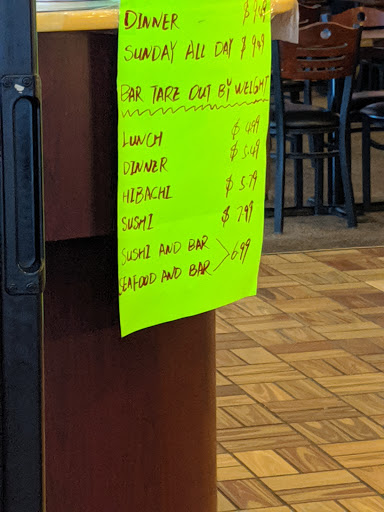 DINNER
SUNDAY ALL DAY $ 9.49
BAR TAKE OUT BY WEIGHT
LUNCH $ 4.99
DINNER $ 5.49
HIBACHI $ 5.79
SUSHI $ 7.99
SUSHI AND BAR
SEAFOOD AND BAR 6.99